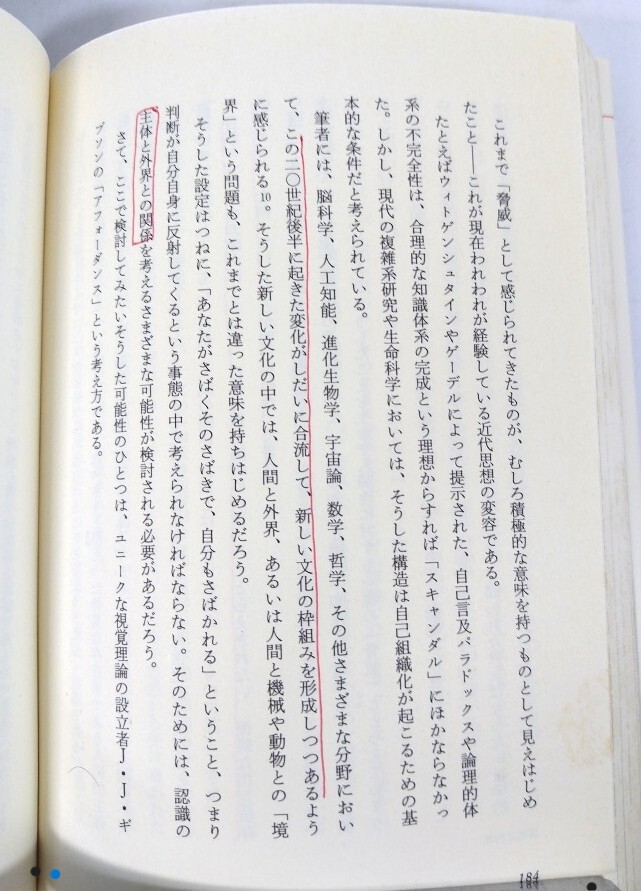 これまで「脅威」として感じられてきたものが、むしろ積極的な意味を持つものとして見えはじめ
たこと――これが現在われわれが経験している近代思想の変容である。
たとえばウィトゲンシュタインやゲーデルによって提示された、自己言及パラドックスや論理的体
系の不完全性は、合理的な知識体系の完成という理想からすれば「スキャンダル」にほかならなかっ
た。しかし、現代の複雑系研究や生命科学においては、そうした構造は自己組織化が起こるための基
本的な条件だと考えられている。
筆者には、脳科学、人工知能、進化生物学、宇宙論、数学、哲学、その他さまざまな分野におい
て、この二〇世紀後半に起きた変化がしだいに合流して、新しい文化の枠組みを形成しつつあるよう
に感じられる10。そうした新しい文化の中では、人間と外界、あるいは人間と機械や動物との「境
界」という問題も、これまでとは違った意味を持ちはじめるだろう。
そうした設定はつねに、「あなたがさばくそのさばきで、自分もさばかれる」ということ、つまり
判断が自分自身に反射してくるという事態の中で考えられなければならない。そのためには、認識の
主体と外界との関係を考えるさまざまな可能性が検討される必要があるだろう。
さて、ここで検討してみたいそうした可能性のひとつは、ユニークな視覚理論の設立者J・J・ギ
ブソンの「アフォーダンス」という考え方である。
184